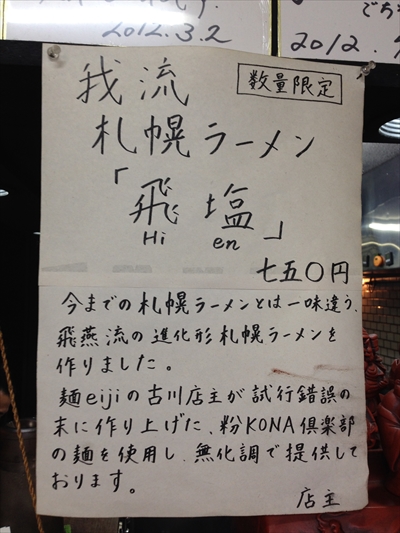 2012.3.2
2012.
我流
数量限定
札幌ラーメン
「飛塩」
Hi en
七五〇円
今までの札幌ラーメンとは一味違う、
飛燕流の進化形札幌ラーメンを
作りました。
麺eijiの古川店主が試行錯誤の
末に作り上げた、粉KONA倶楽部
の麺を使用し、無化調で提供して
おります。
店主